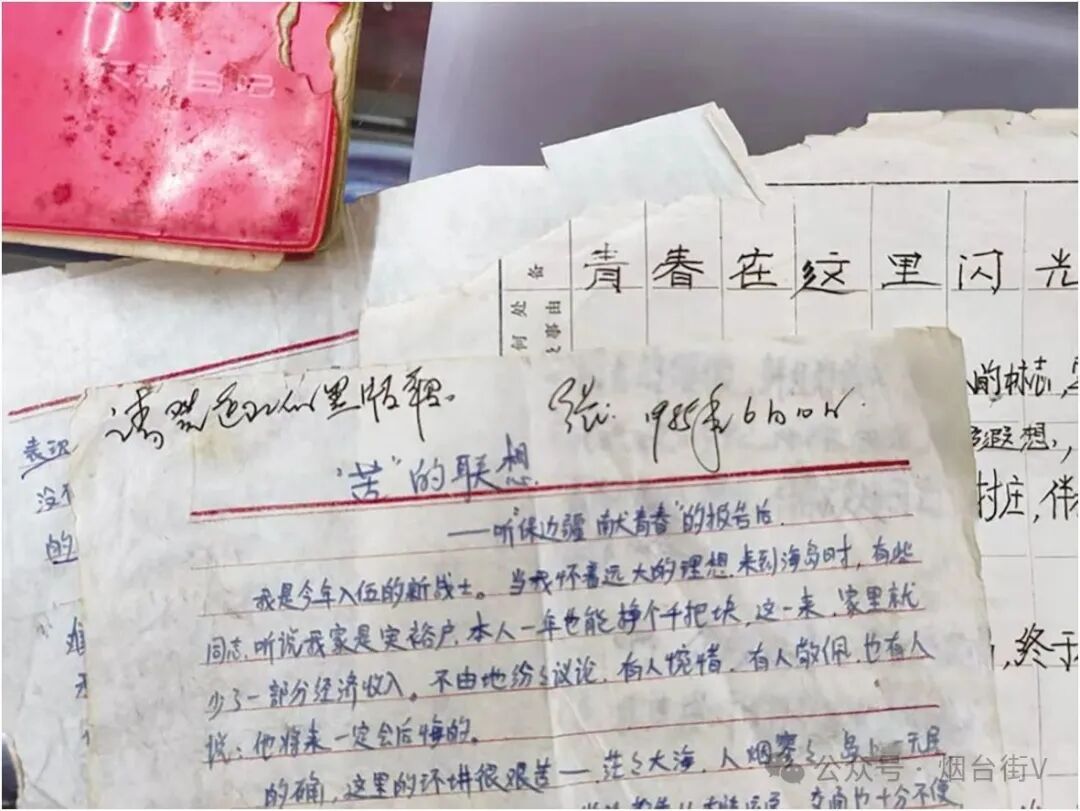 日记
青春在这里闪光
备
何处
事由
的标志
遐想,
村庄,伴
,终于
表现
没有
的
1985年6月10日.
"苦"的联想
——听"保边疆 献青春"的报告后.
我是今年入伍的新战士。当我怀着远大的理想.来到海岛时,有些
同志.听说我家是寔裕户.本人一年也能挣个千把块,这一来.家里就
少了一部分经济收入。不由地纷々议论.有人惋惜.有人敬佩.也有人
说:他将来一定会后悔的。
的确,这里的环境很艰苦——茫々大海.人烟寥々.岛上无居
交通也十分不便
公众号·烟台街V